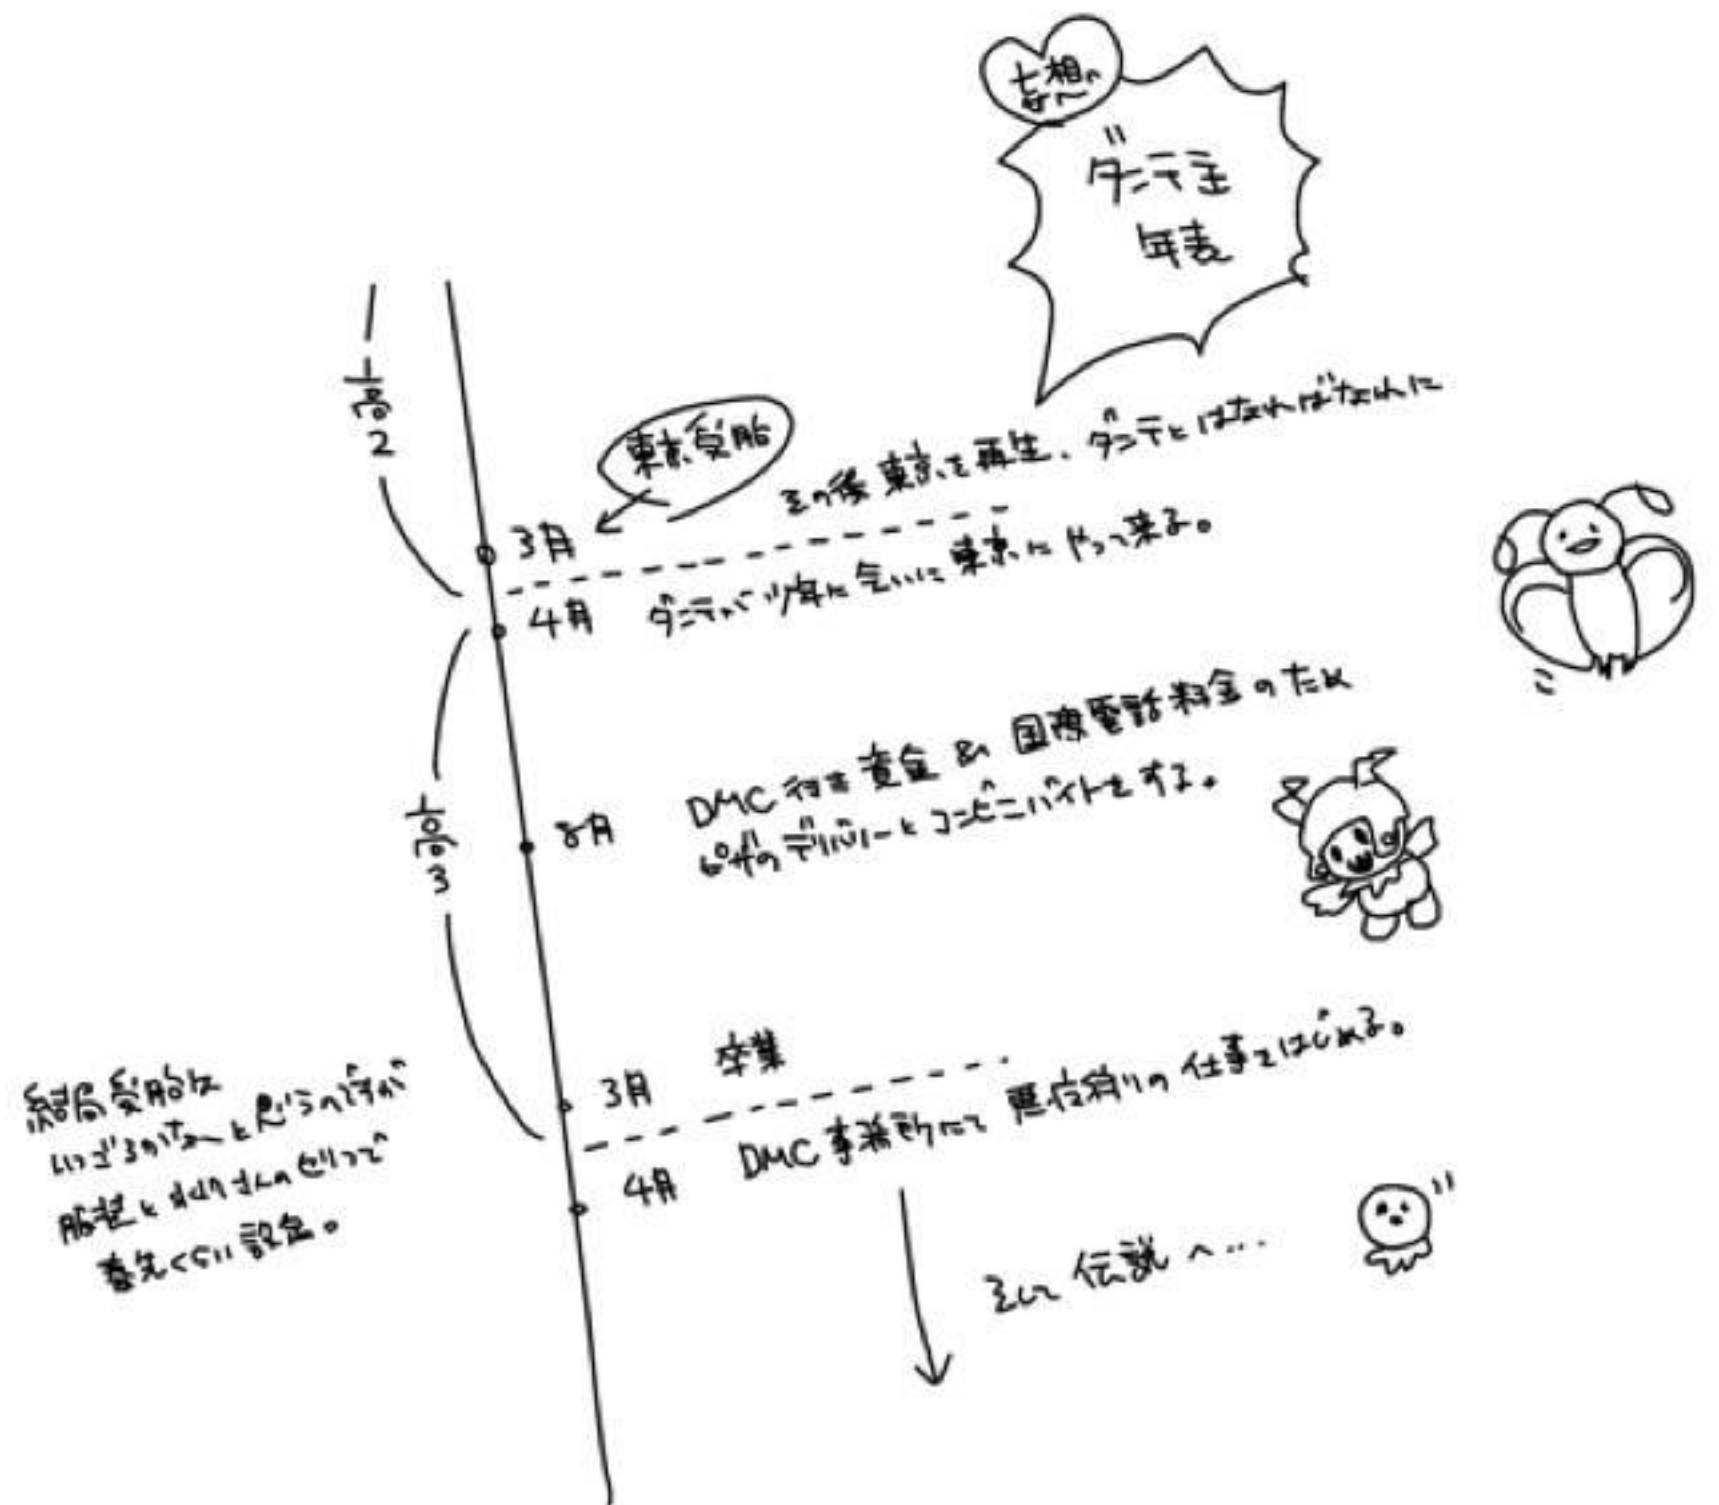 妄想
ダンテ主
年表
高2
東京受胎
3月
その後東京を再生、ダンテとはなればなれに
4月 ダンテが少年に会いに東京にやって来る。
高3
8月
DMC行き資金& 国際電話料金のため
ピザのデリバリーとコンビニバイトをする。
3月 卒業
4月 DMC事務所にて 悪魔狩りの仕事をはじめる。
そして伝説へ…
結局受胎は
いつごろかなーと思うのですが
服装と
春先くらい設定。